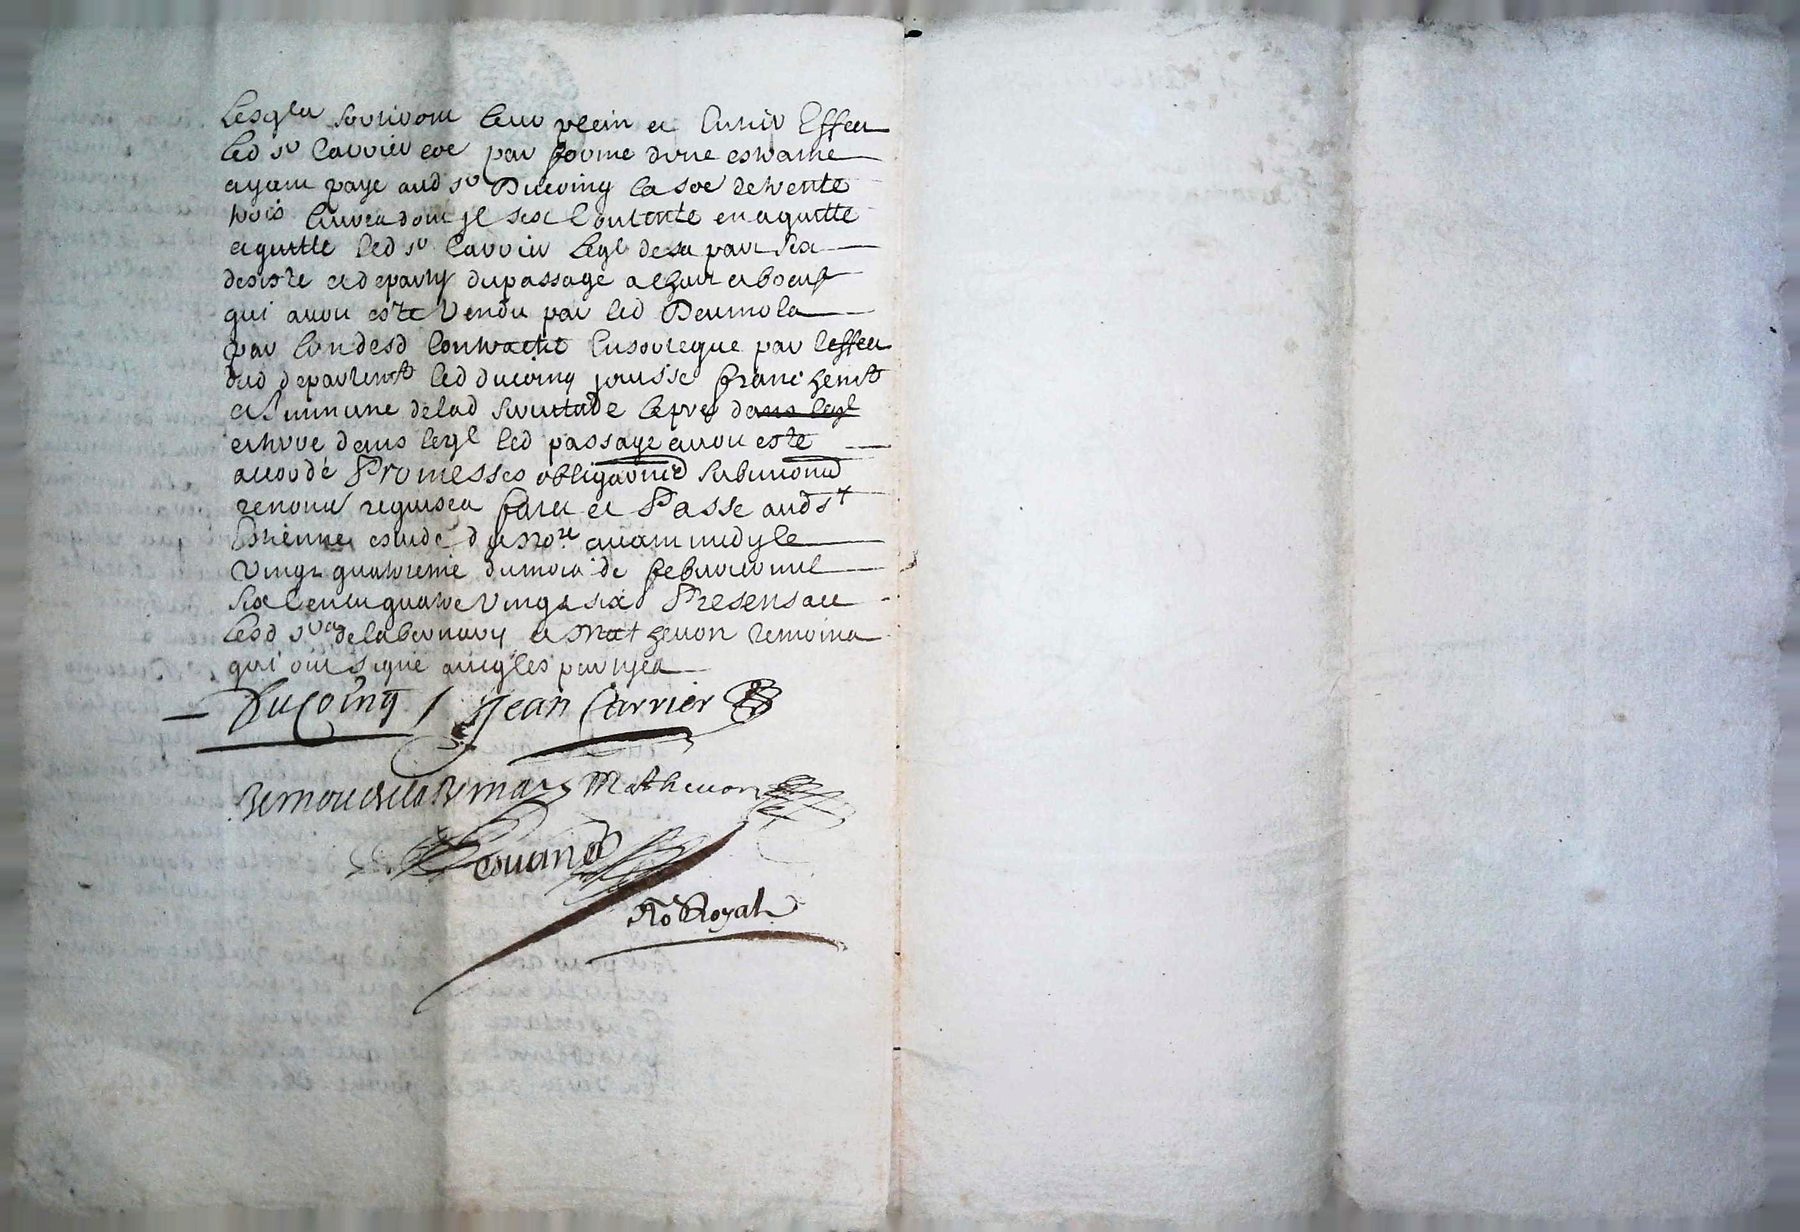 lesqls sortiront leur plein et entier effect
led sr Carrier eve par forme dune estraine
ayant paye aud sr Ducoing la soe de trente
trois livres dont jl sest contente en a quitte
et quitte led sr Carrier leql de sa part sest
desiste et departy du passage a char et boeuf
qui avoit este vendu par led
par lun desd contracts ensorte que par leffect
dud departemt led ducoing jouisse franchemt
et jmmune de lad servitude le pres dans leql
et trove dans leql led passage avoit este
accorde Promesses obligaons submions
renons requises fait et Passe aud st
Estienne estude du nore avant midy le
vingt quatrieme du mois de febvrier mil
six cens quatre vingt six Presens a ce
lesd srs de la bernary et Mathevon temoins
qui ont signe avec les partyes
Ducoing Jean Carrier
Mathevon

No Royal